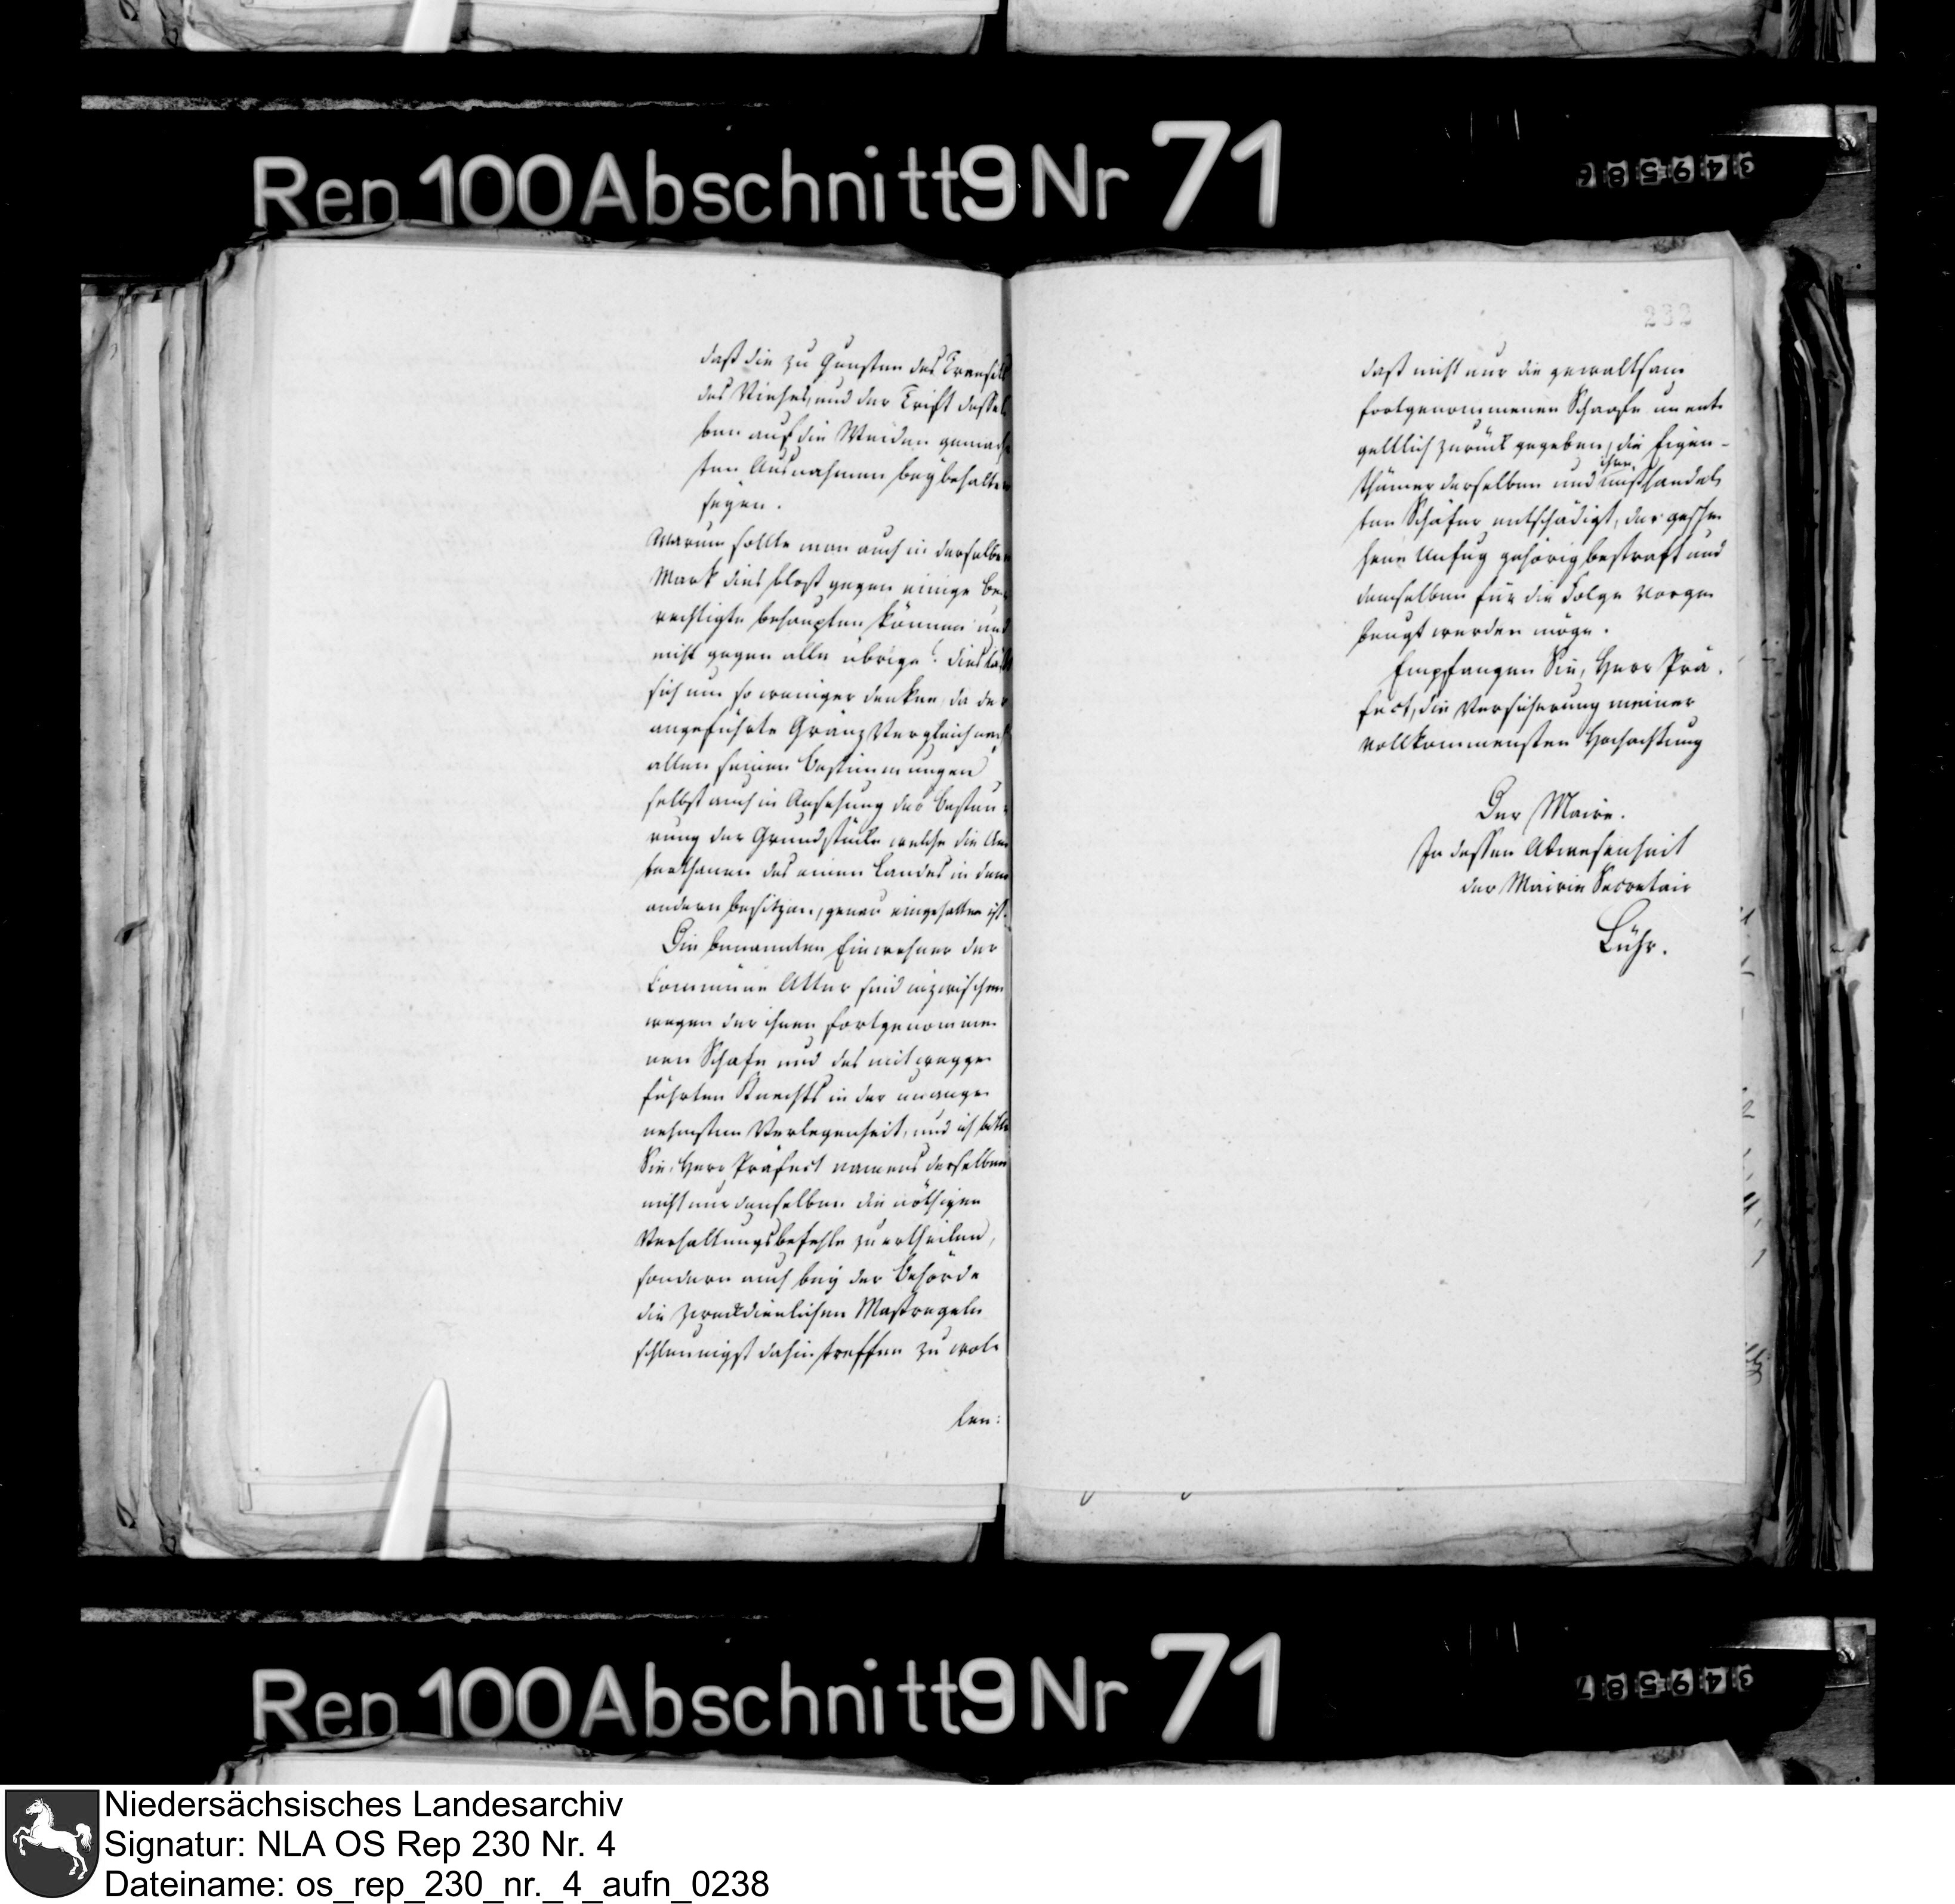 Rep 100 Abschnitt 9 Nr 71
349586
daß die zu Gunsten des Transits
des Viehes, und der Trift dessel
ben auf die Weiden gemach
ten Ausnahmen beybehalten
seyen.
Warum sollte man auch in derselben
Mark dies bloß gegen einige Be-
rechtigte behaupten können und
nicht gegen alle übrige? Dies läßt
sich um so weniger denken, da der
angeführte Gränz Vergleich nach
allen seinen Bestimmungen
selbst auch in Ansehung der Besteu-
rung der Grundstücke welche die Un
terthanen des einen Landes in dem
andern besitzen, genau eingehalten ist.
Die benannten Einwohner der
Commüne Atter sind inzwischen
wegen der ihnen fortgenomme-
nen Schafe und des mit wegge-
führten Knechts in der unange-
nehmsten Verlegenheit, und ich bitte
Sie, Herr Präfect namens derselben
nicht nur denselben die nöthigen
Verhaltungsbefehle zu ertheilen,
sondern auch bey der Behörde
die zweckdienlichen Maßregeln
schleunigst dahin treffen zu wol-
len:
232
daß nicht nur die gewaltsam
fortgenommenen Schaafe unent-
geltlich zurück gegeben, die Eigen-
thümer derselben und ihren mißhandel
ten Schäfer entschädigt, der gesche-
hene Unfug gehörig bestraft und
demselben für die Folge vorge-
beugt werden möge.
Empfangen Sie, Herr Prä-
fect, die Versicherung meiner
vollkommensten Hochachtung
Der Maire.
In dessen Abwesenheit
der Mairie Secretair
Lühr.
Rep 100 Abschnitt 9 Nr 71
349587
Niedersächsisches Landesarchiv
Signatur: NLA OS Rep 230 Nr. 4
Dateiname: os_rep_230_nr._4_aufn_0238